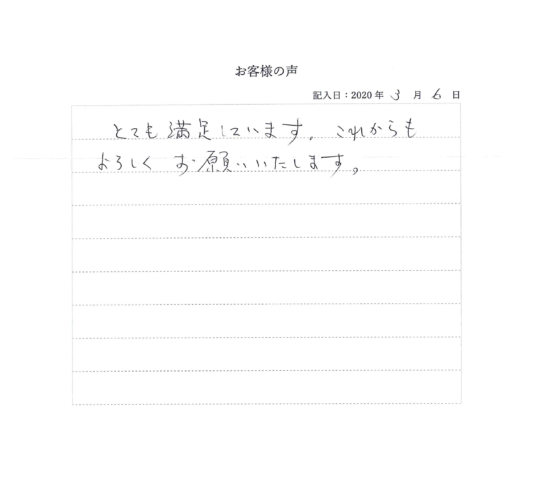 お客様の声
記入日：2020年 3 月 6 日
とても満足しています。これからも
よろしく お願いいたします。